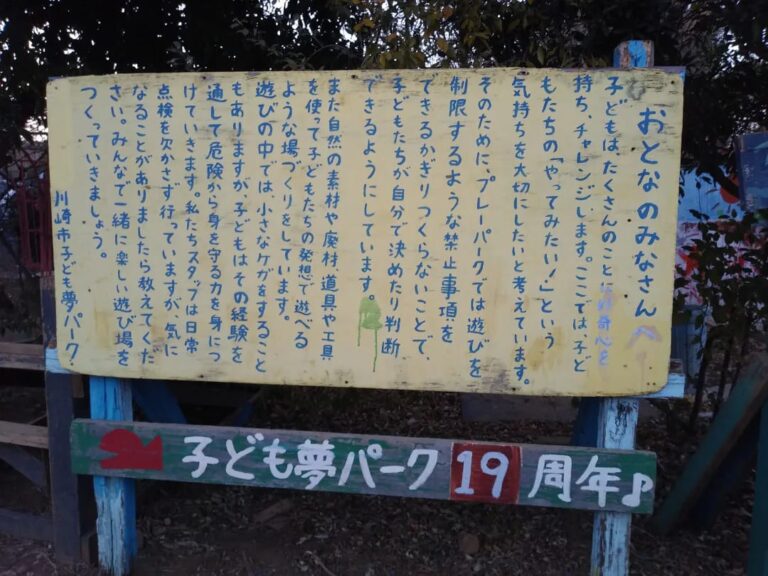 おとなのみなさんへ
子どもは、たくさんのことに好奇心を
持ち、チャレンジします。ここでは、子ど
もたちの「やってみたい!」という
気持ちを大切にしたいと考えています。
そのために、プレーパークでは遊びを
制限するような禁止事項を
できるかぎりつくらないことで、
子どもたちが自分で決めたり判断
できるようにしています。
また自然の素材や廃材、道具や工具
を使って子どもたちの発想で遊べる
ような場づくりをしています。
遊びの中では、小さなケガをすること
もありますが、子どもはその経験を
通して危険から身を守る力を身につ
けていきます。私たちスタッフは日常
点検を欠かさず行っていますが、気に
なることがありましたら教えてくだ
さい。みんなで一緒に楽しい遊び場を
つくっていきましょう。
川崎市子ども夢パーク
子ども夢パーク19周年♪